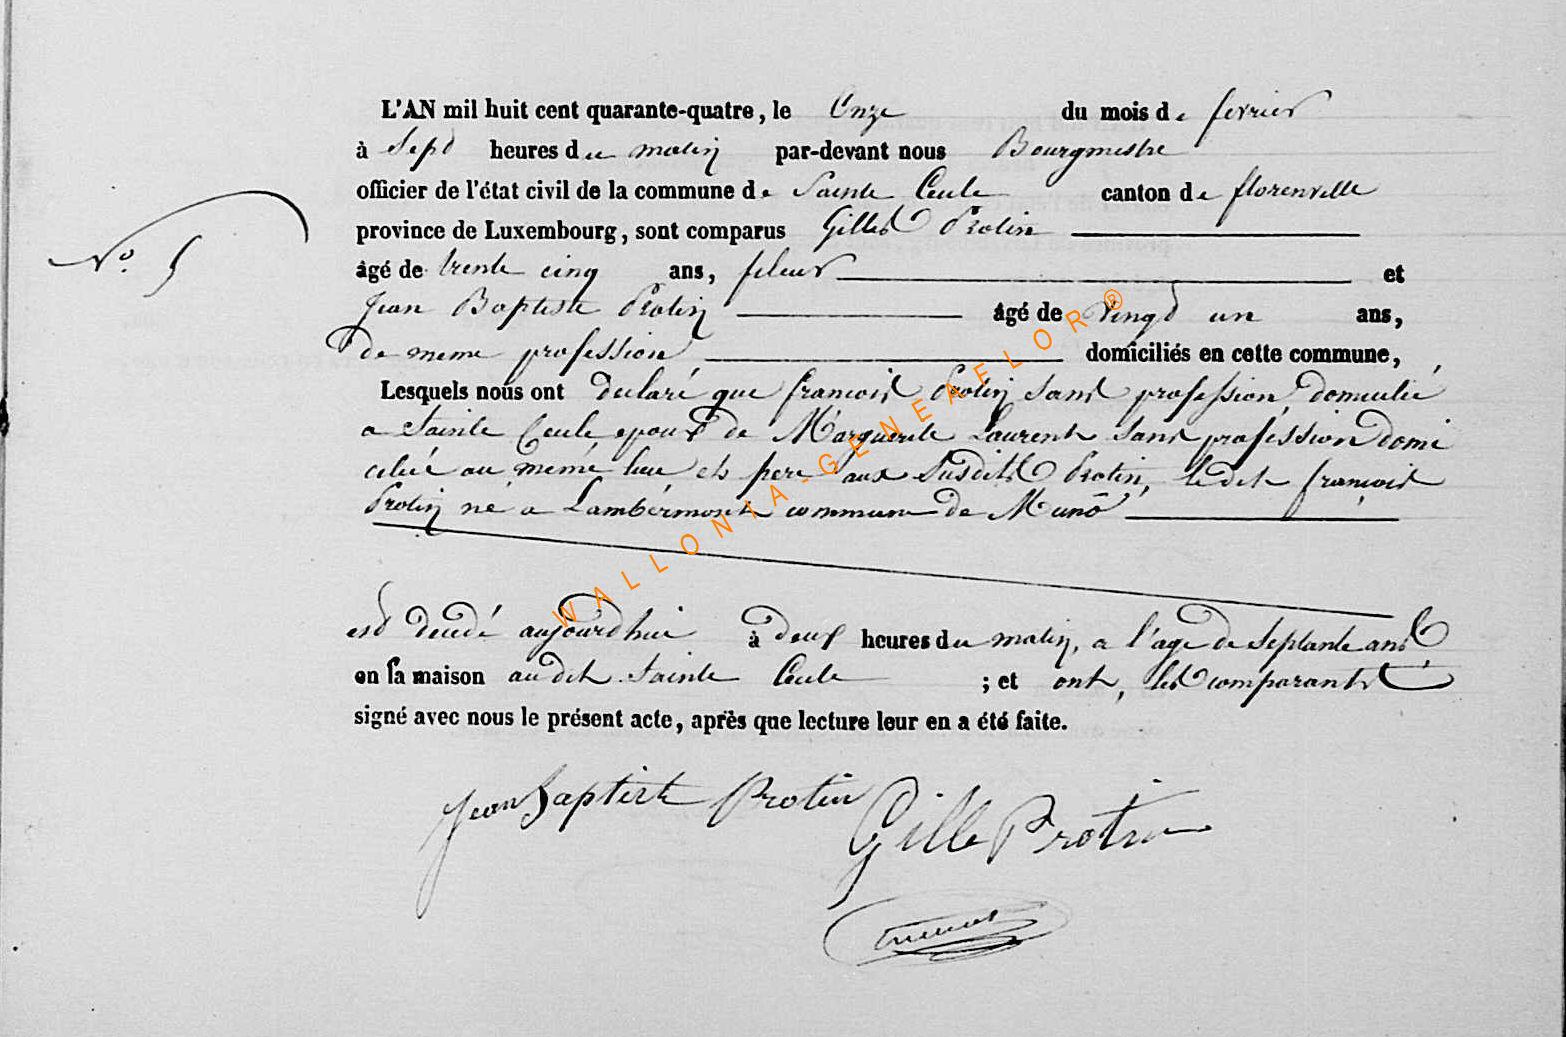 L'AN mil huit cent quarante-quatre, le Onze du mois de fevrier
à Sept heures du matin par-devant nous Bourgmestre
officier de l'état civil de la commune de Sainte Cecile canton de florenville
province de Luxembourg, sont comparus Gilles Protin
N.° 5
âgé de trente cinq ans, fileur et
Jean Baptiste Protin âgé de vingt un ans,
de meme profession domiciliés en cette commune,
Lesquels nous ont declaré que francois Protin sans profession, domicilié
a Sainte Cecile, epoux de Marguerite Laurent sans profession domi
ciliée au meme lieu, et pere aux susdits Protin, le dit françois
Protin né a Lambermont commune de Muno
est decedé aujourdhui à deux heures du matin, a l'age de Septante ans
en sa maison au dit Sainte Cecile ; et ont, les comparants
signé avec nous le présent acte, après que lecture leur en a été faite.
Jean Baptiste Protin
Gille Protin
WALLONIA-GENEAFLOR®